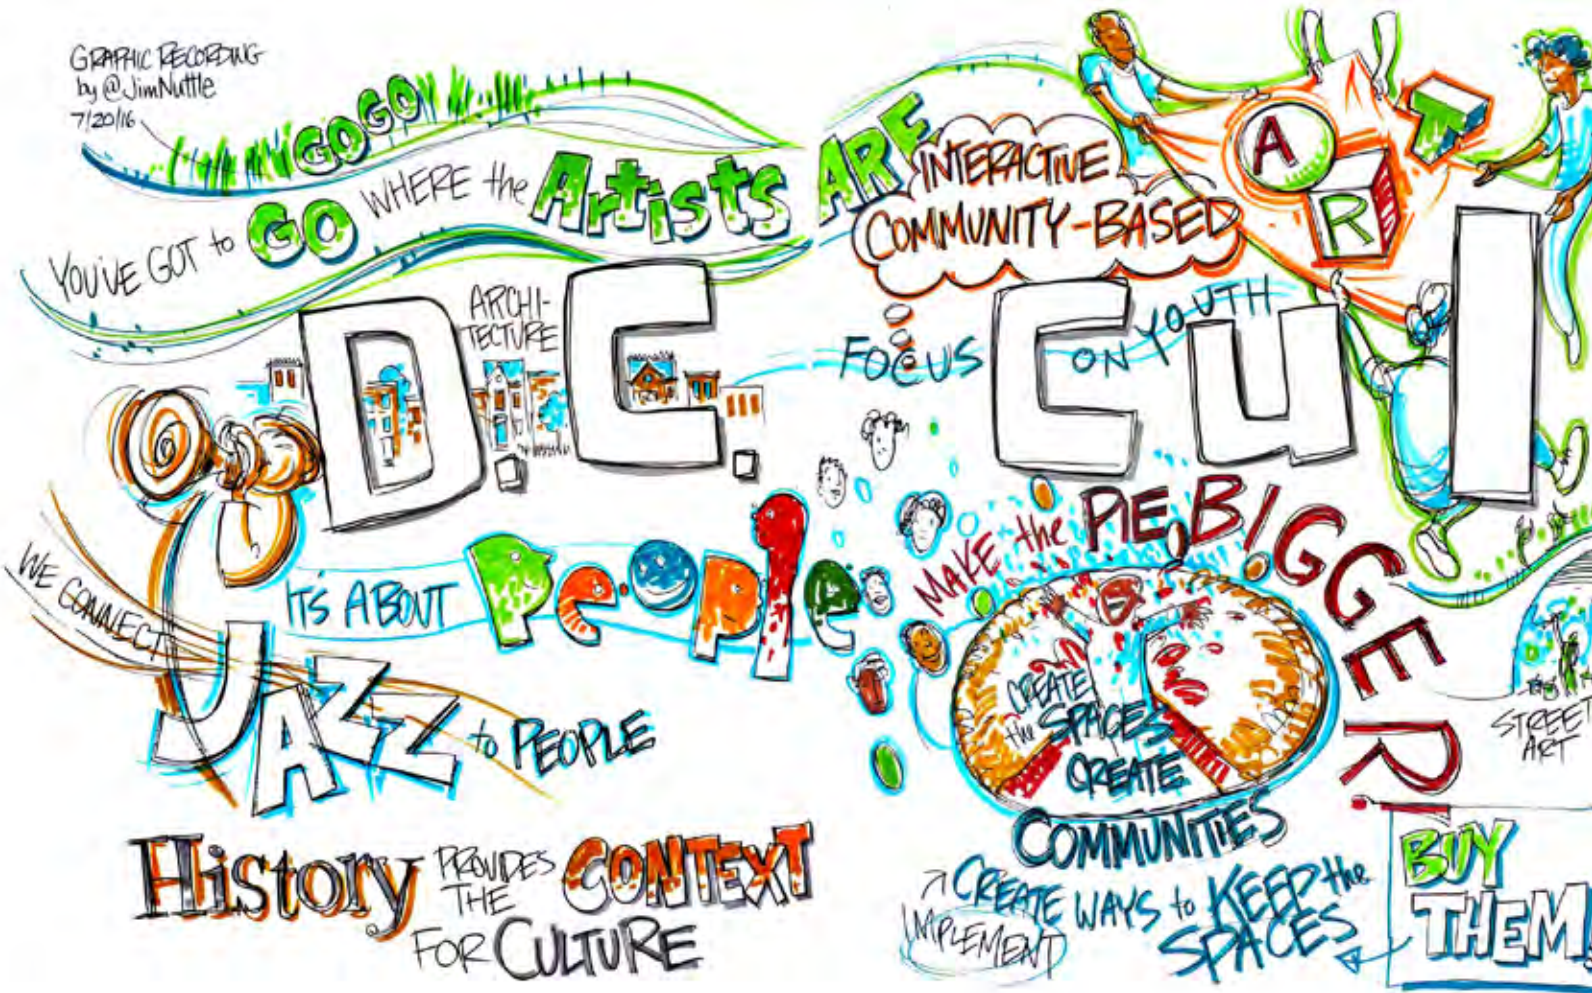 GRAPHIC RECORDING
by @JimNuttle
7/20/16
GO GO
YOU'VE GOT to GO WHERE the Artists ARE
INTERACTIVE
COMMUNITY-BASED
A
R
T
ARCHI-
TECTURE
D.C. Cul
FOCUS ON YOUTH
WE CONNECT
JAZZ
to PEOPLE
IT'S ABOUT People
MAKE the PIE BIGGER!
CREATE
the SPACES
CREATE
COMMUNITIES
STREET
ART
History PROVIDES
THE CONTEXT
FOR CULTURE
CREATE WAYS to KEEP the
SPACES
IMPLEMENT
BUY
THEM